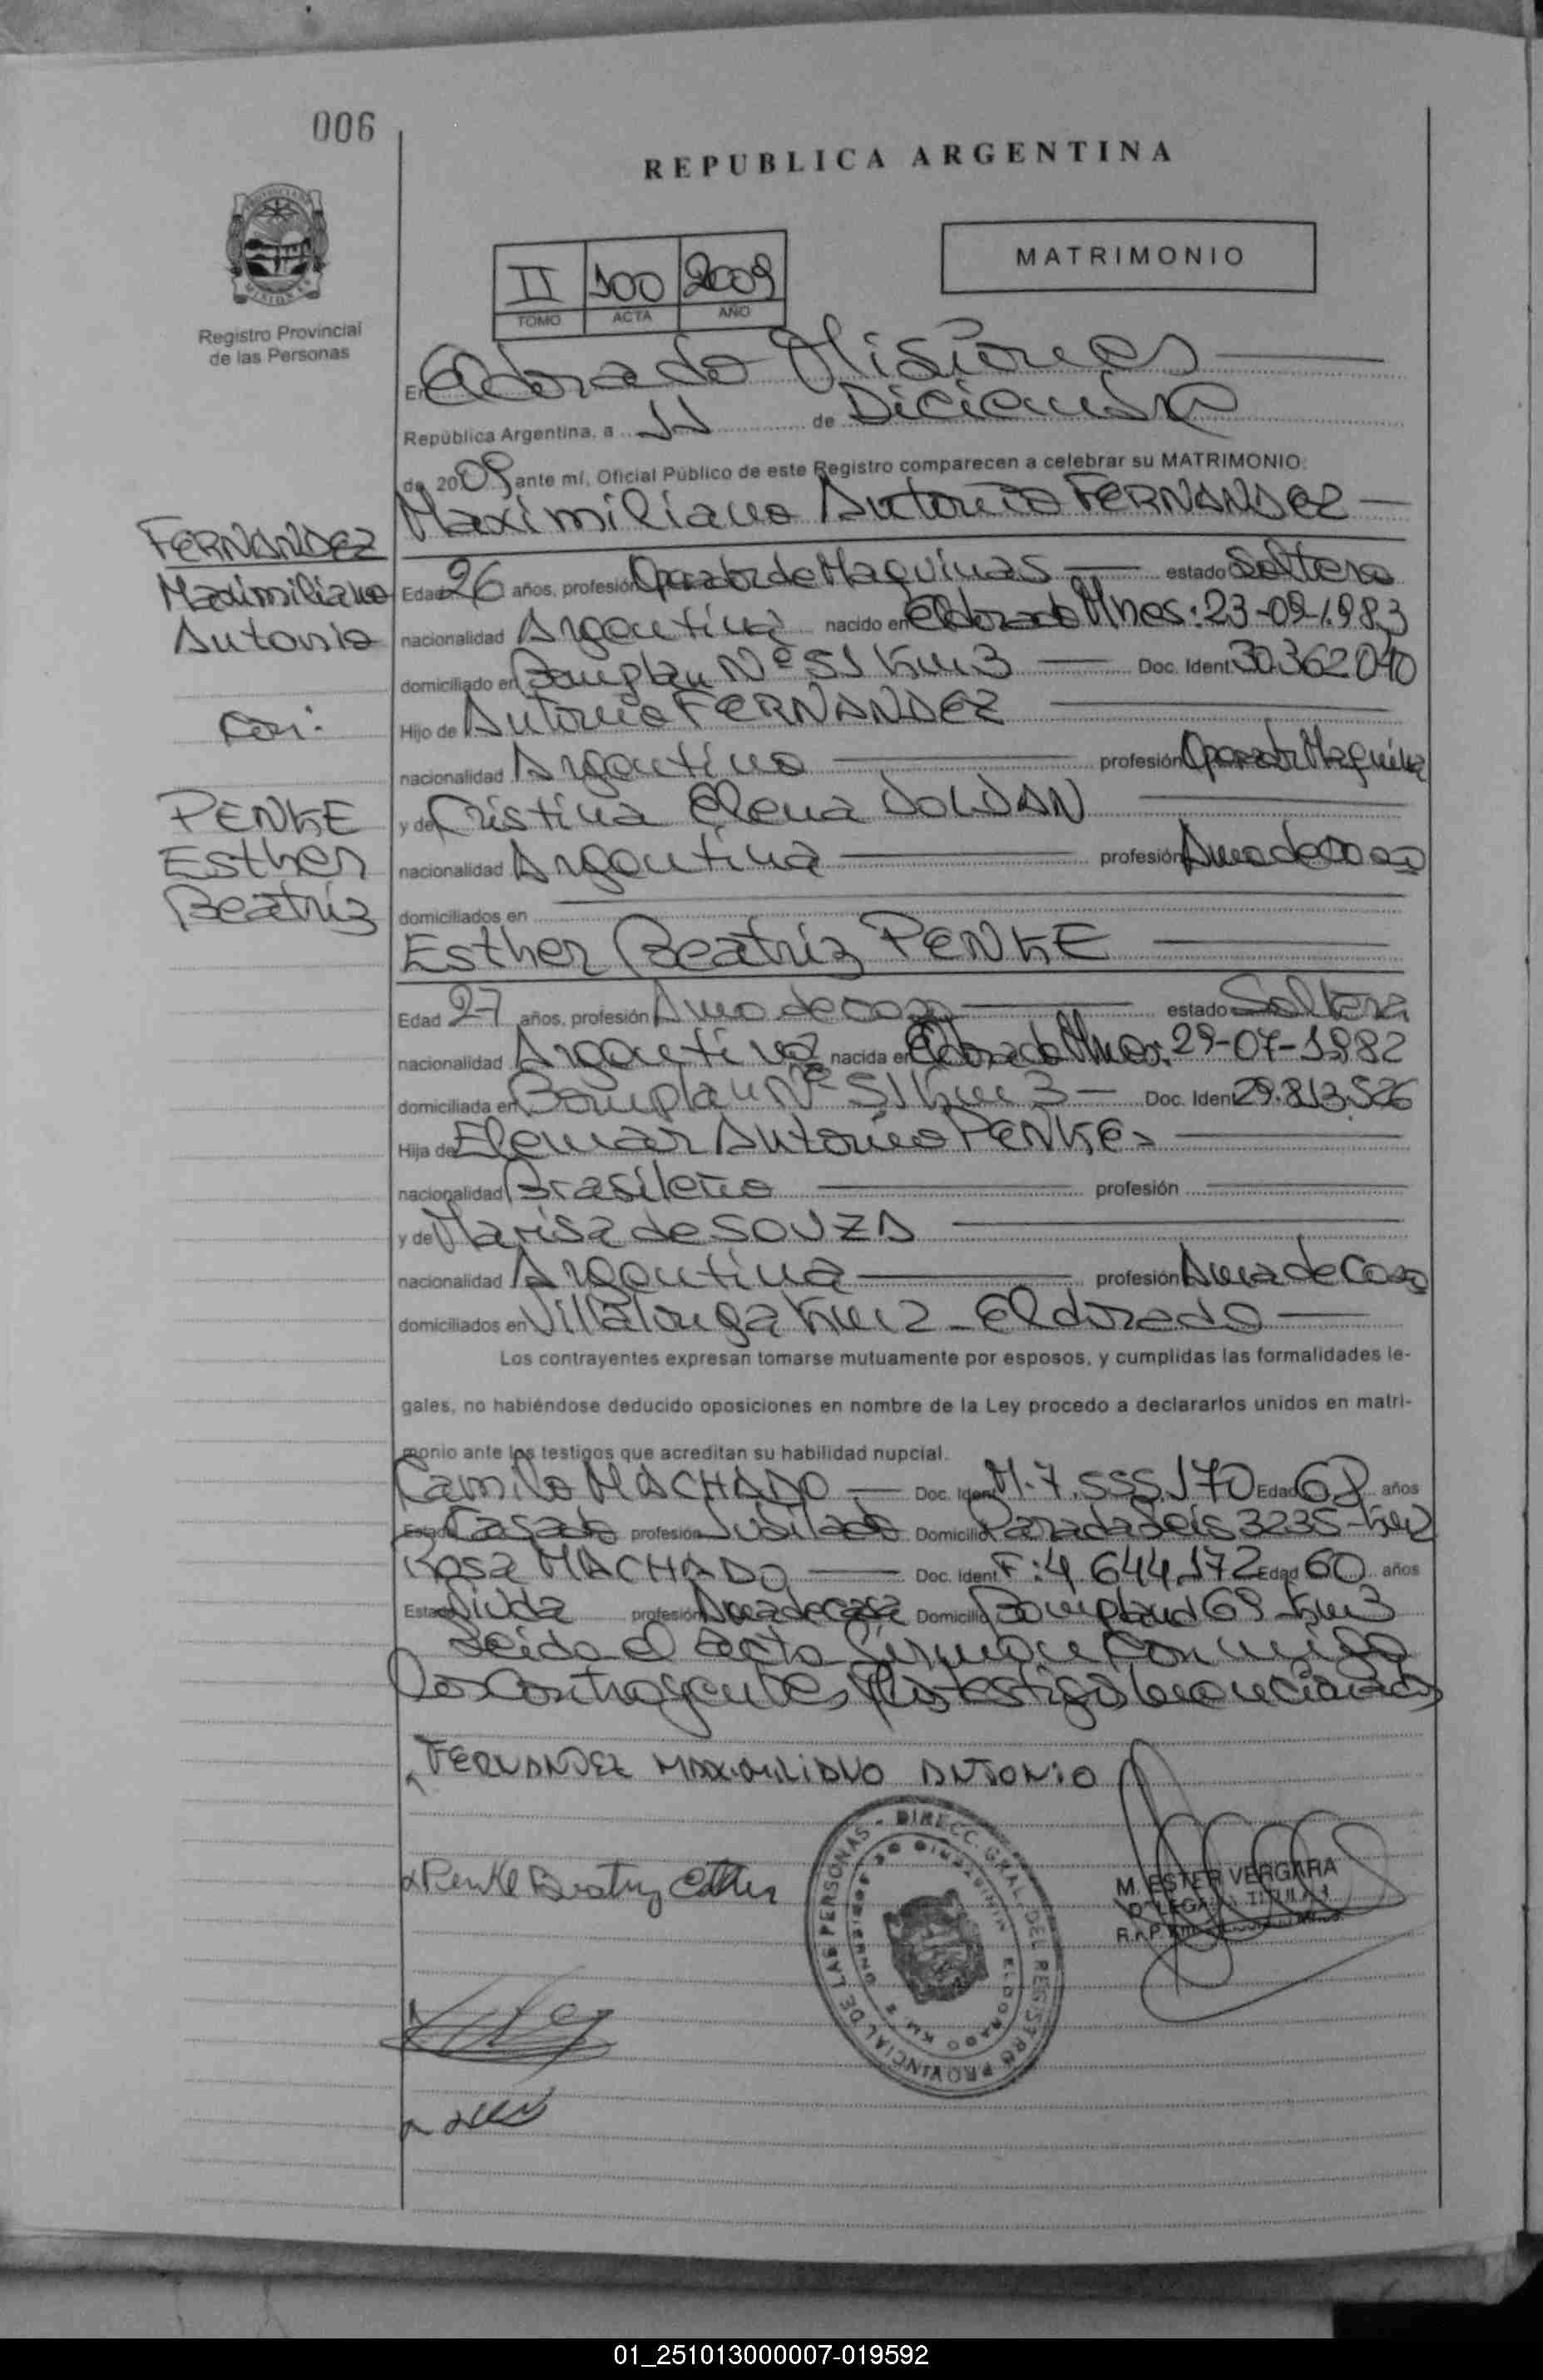 006
REPUBLICA ARGENTINA
MATRIMONIO
II 100 2009
TOMO ACTA AÑO
Registro Provincial
de las Personas
En Eldorado Misiones
República Argentina, a 11 de Diciembre
de 2009 ante mí, Oficial Público de este Registro comparecen a celebrar su MATRIMONIO:
Maximiliano Antonio FERNANDEZ
FERNANDEZ
Maximiliano
Antonio
con:
PENKE
Esther
Beatriz
Edad 26 años, profesión Operador de Maquinas estado Soltero
nacionalidad Argentina nacido en Eldorado Mnes: 23-09-1983
domiciliado en Bomplan Nº 51 Km 3 Doc. Ident. 30.362.040
Hijo de Antonio FERNANDEZ
nacionalidad Argentino profesión Operador Maquina
y de Cristina Elena DOLDAN
nacionalidad Argentina profesión Ama de casa
domiciliados en
Esther Beatriz PENKE
Edad 27 años, profesión Ama de casa estado Soltera
nacionalidad Argentina nacida en Eldorado Mnes: 29-07-1982
domiciliada en Bomplan Nº 51 Km 3 Doc. Ident. 29.813.526
Hija de Elemar Antonio PENKE
nacionalidad Brasileño profesión
y de Marisa de SOUZA
nacionalidad Argentina profesión Ama de Casa
domiciliados en Villalonga Km 2 - Eldorado
Los contrayentes expresan tomarse mutuamente por esposos, y cumplidas las formalidades le-
gales, no habiéndose deducido oposiciones en nombre de la Ley procedo a declararlos unidos en matri-
monio ante los testigos que acreditan su habilidad nupcial.
Camilo MACHADO Doc. Ident. M. 7.555.170 Edad 68 años
Estado Casado profesión Jubilado Domicilio Parada Seis 3235-Km2
Rosa MACHADO Doc. Ident. F: 4.644.172 Edad 60 años
Estado Viuda profesión Ama de casa Domicilio Bompland 69 - Km3
Leida el acta firman conmigo
los contrayentes y los testigos mencionados
FERNANDEZ MAXIMILIANO ANTONIO
Penke Beatriz Esther
DIRECC. GRAL. DEL REGISTRO PROVINCIAL DE LAS PERSONAS -
ELDORADO KM
M. ESTER VERGARA
DELEGADA TITULAR
01_251013000007-019592